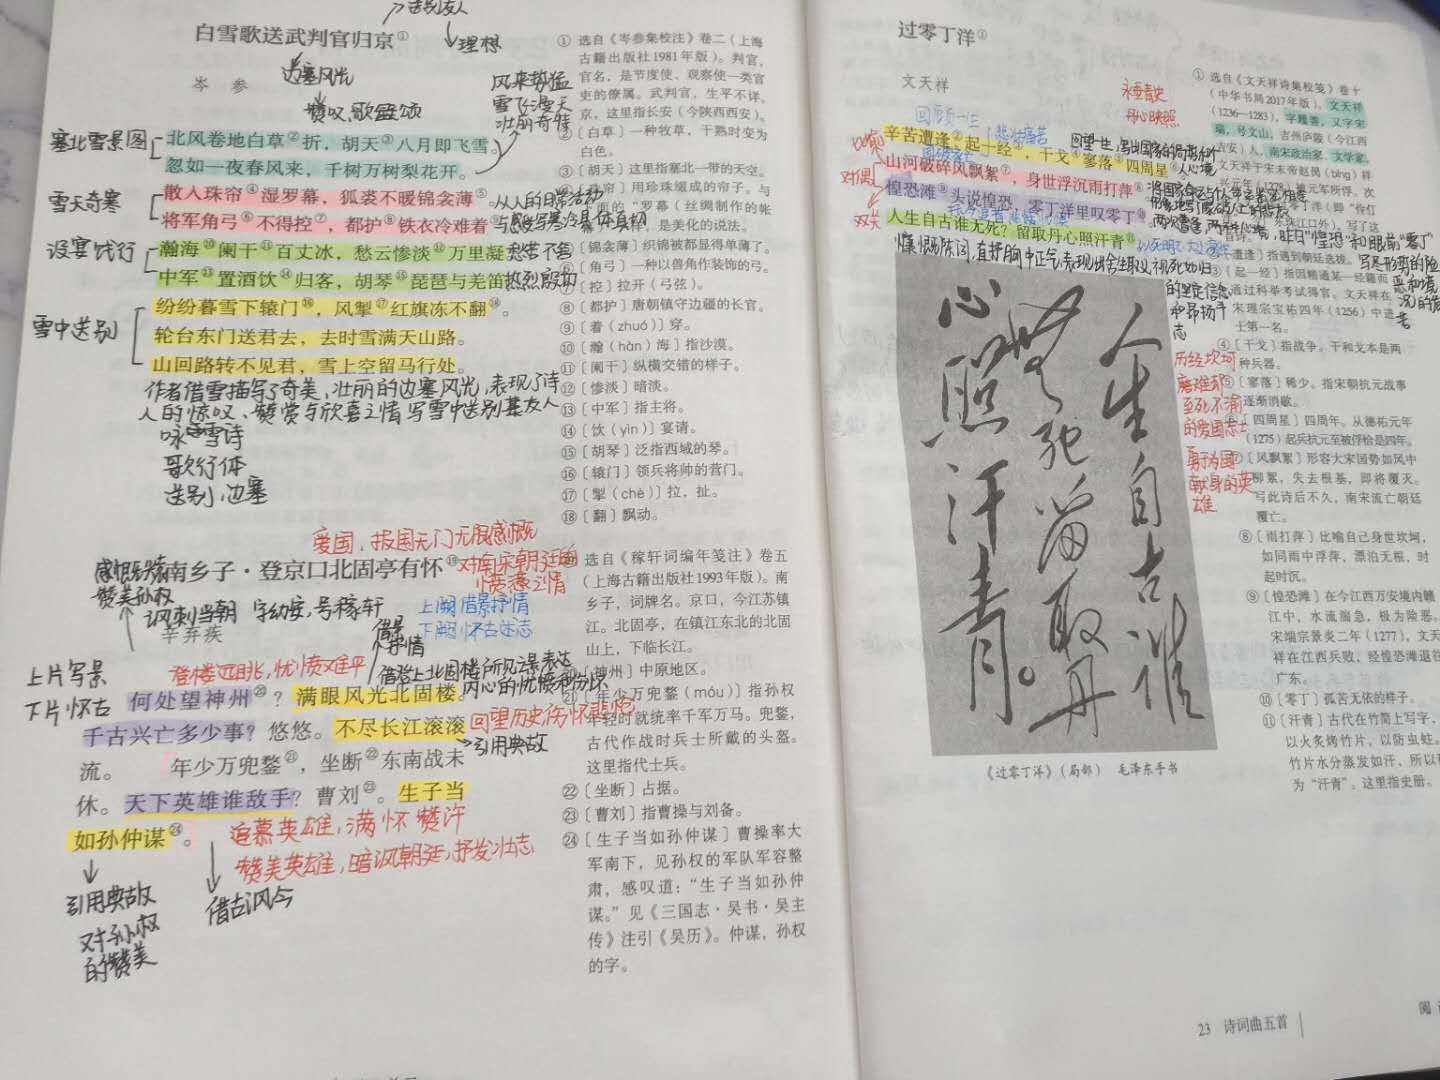 送别友人
白雪歌送武判官归京①
理想
岑 参
边塞风光
赞叹,歌颂
风来势猛
雪飞漫天
壮丽奇特
塞北雪景图
北风卷地白草②折，胡天③八月即飞雪。
忽如一夜春风来，千树万树梨花开。
雪天奇寒
散入珠帘④湿罗幕，狐裘不暖锦衾薄⑤
将军角弓⑥不得控⑦，都护⑧铁衣冷难着
从人的日常活动
与感受写寒冷具体真切
设宴饯行
瀚海⑩阑干⑪百丈冰，愁云惨淡⑫万里凝
中军⑬置酒饮⑭归客，胡琴⑮琵琶与羌笛
愁苦不舍
热烈殷切
雪中送别
纷纷暮雪下辕门⑯，风掣⑰红旗冻不翻⑱。
轮台东门送君去，去时雪满天山路。
山回路转不见君，雪上空留马行处。
作者借雪描写了奇美,壮丽的边塞风光,表现了诗
人的惊叹、赞赏与欣喜之情 写雪中送别友人
咏雪诗
歌行体
送别,边塞
① 选自《岑参集校注》卷二（上海
古籍出版社1981年版）。判官，
官名，是节度使、观察使一类官
吏的僚属。武判官，生平不详。
京，这里指长安（今陕西西安）。
②〔白草〕一种牧草，干熟时变为
白色。
③〔胡天〕这里指塞北一带的天空。
帘〕用珍珠缀成的帘子。与
面的“罗幕（丝绸制作的帐
样，是美化的说法。
〔锦衾薄〕织锦被都显得单薄了。
⑥〔角弓〕一种以兽角作装饰的弓。
⑦〔控〕拉开（弓弦）。
⑧〔都护〕唐朝镇守边疆的长官。
⑨〔着（zhuó）〕穿。
⑩〔瀚（hàn）海〕指沙漠。
⑪〔阑干〕纵横交错的样子。
⑫〔惨淡〕暗淡。
⑬〔中军〕指主将。
⑭〔饮（yìn）〕宴请。
⑮〔胡琴〕泛指西域的琴。
⑯〔辕门〕领兵将帅的营门。
⑰〔掣（chè）〕拉，扯。
⑱〔翻〕飘动。
爱国,报国无门无限感慨
对南宋朝廷的
愤懑之情
南乡子·登京口北固亭有怀⑲
赞美孙权
讽刺当朝 字幼安,号稼轩
辛弃疾
上阕借景抒情
下阕怀古述志
借景
抒情
登楼远眺,忧愤难平
借登上北固楼所见之景表达
内心的忧愤和
上片写景
下片怀古
何处望神州⑳？满眼风光北固楼。
千古兴亡多少事？悠悠。不尽长江滚滚
回望历史伤怀悲怆
引用典故
流。 年少万兜鍪㉑，坐断㉒东南战未
休。天下英雄谁敌手？曹刘㉓。生子当
如孙仲谋㉔。
追慕英雄,满怀赞许
赞美英雄,暗讽朝廷,抒发壮志
引用典故
对孙权
的赞美
借古讽今
选自《稼轩词编年笺注》卷五
（上海古籍出版社1993年版）。南
乡子，词牌名。京口，今江苏镇
江。北固亭，在镇江东北的北固
山上，下临长江。
〔神州〕中原地区。
㉑〔年少万兜鍪（móu）〕指孙权
年轻时就统率千军万马。兜鍪，
古代作战时兵士所戴的头盔。
这里指代士兵。
㉒〔坐断〕占据。
㉓〔曹刘〕指曹操与刘备。
㉔〔生子当如孙仲谋〕曹操率大
军南下，见孙权的军队军容整
肃，感叹道：“生子当如孙仲
谋。”见《三国志·吴书·吴主
传》注引《吴历》。仲谋，孙权
的字。
过零丁洋①
文天祥
永垂青史
丹心映照
回顾一生
悲壮痛苦
辛苦遭逢②起一经③，干戈④寥落⑤四周星⑥
对偶
山河破碎风飘絮⑦，身世浮沉雨打萍⑧
双关
惶恐滩⑨头说惶恐，零丁洋里叹零丁⑩
人生自古谁无死？留取丹心照汗青⑪
慷慨陈词,直抒胸中正气,表现出舍生取义,视死如归
的坚定信念
和昂扬斗
志
历经坎坷
磨难却
至死不渝
的爱国志士
勇于为国
献身的英
雄
① 选自《文天祥诗集校笺》卷十
（中华书局2017年版）。文天祥
（1236—1283），字履善，又字宋
瑞，号文山，吉州庐陵（今江西
吉安）人，南宋政治家、文学家。
③〔起一经〕指因精通某一经籍而
通过科举考试得官。文天祥在
宋理宗宝祐四年（1256）中进
士第一名。
④〔干戈〕指战争。干和戈本是两
种兵器。
⑤〔寥落〕稀少。指宋朝抗元战事
逐渐消歇。
⑥〔四周星〕四周年。从德祐元年
（1275）起兵抗元至被俘恰是四年。
⑦〔风飘絮〕形容大宋国势如风中
柳絮，失去根基，即将覆灭。
写此诗后不久，南宋流亡朝廷
覆亡。
⑧〔雨打萍〕比喻自己身世坎坷，
如同雨中浮萍，漂泊无根，时
起时沉。
⑨〔惶恐滩〕在今江西万安境内赣
江中，水流湍急，极为险恶。
宋端宗景炎二年（1277），文天
祥在江西兵败，经惶恐滩退往
广东。
⑩〔零丁〕孤苦无依的样子。
⑪〔汗青〕古代在竹简上写字，
以火炙烤竹片，以防虫蛀。
竹片水分蒸发如汗，所以称
为“汗青”。这里指史册。
人生自古谁
无死留取丹
心照汗青。
《过零丁洋》（局部） 毛泽东手书
23 诗词曲五首
阅